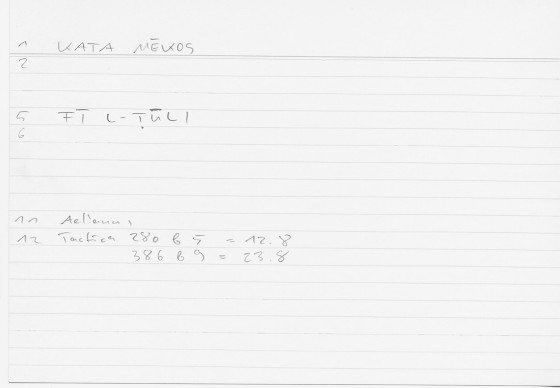 1 KATA MĒKOS
2
5 FĪ L-ṬŪLI
6
11 Aelianus
12 Tactica 280 b 5 = 12.8
386 b 9 = 23.8